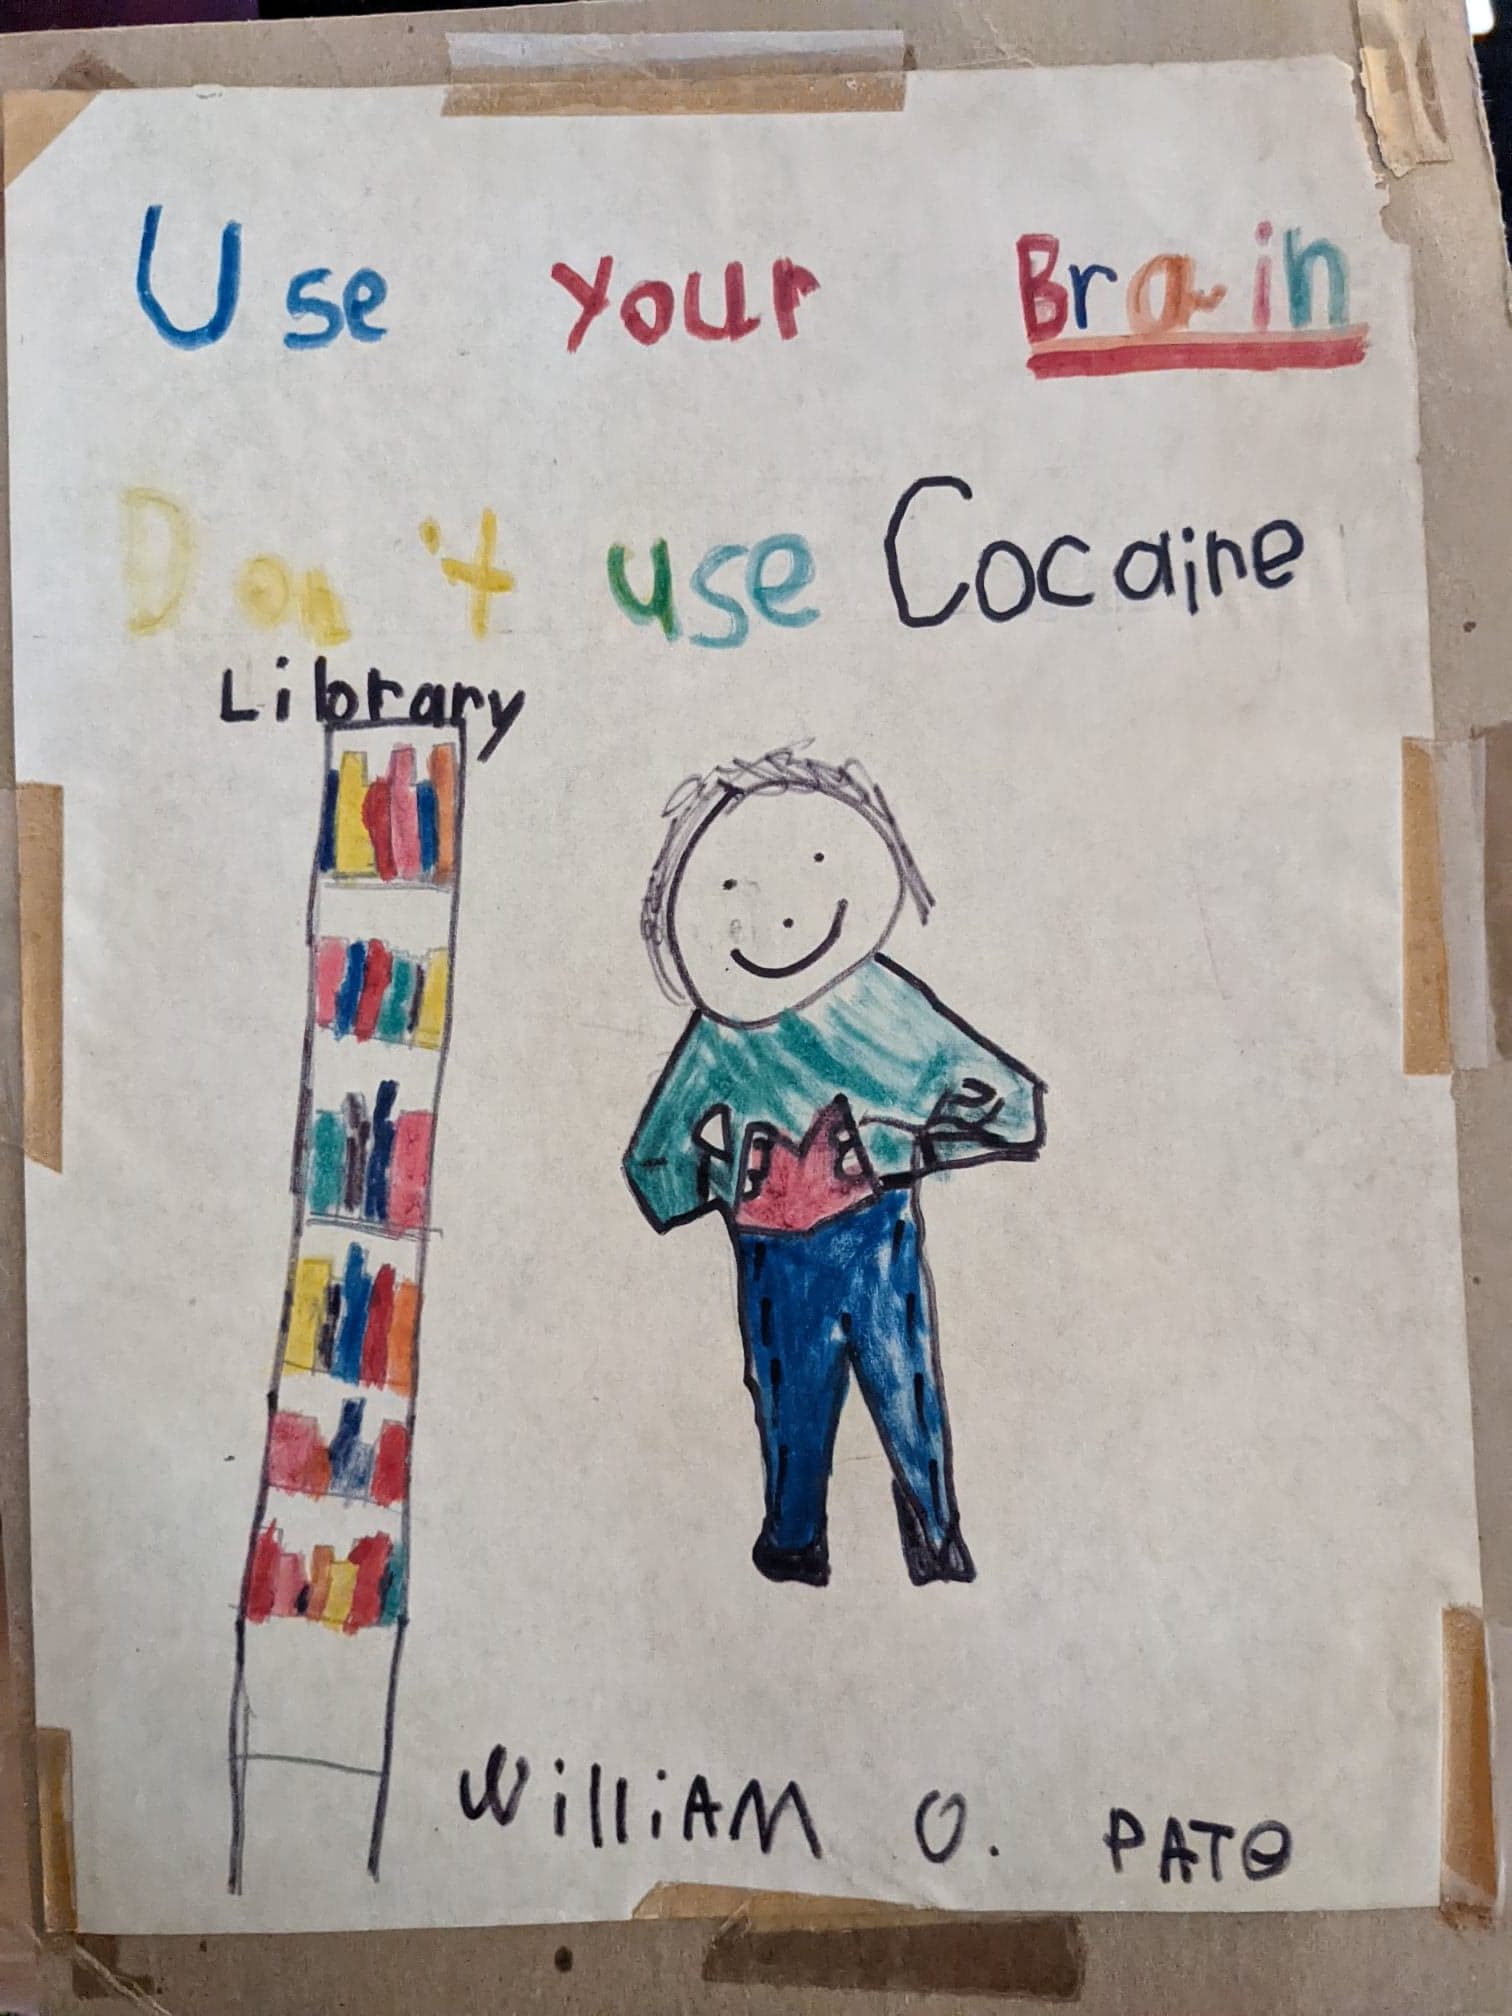 Use your Brain
Don't use Cocaine
Library
William O. PATO